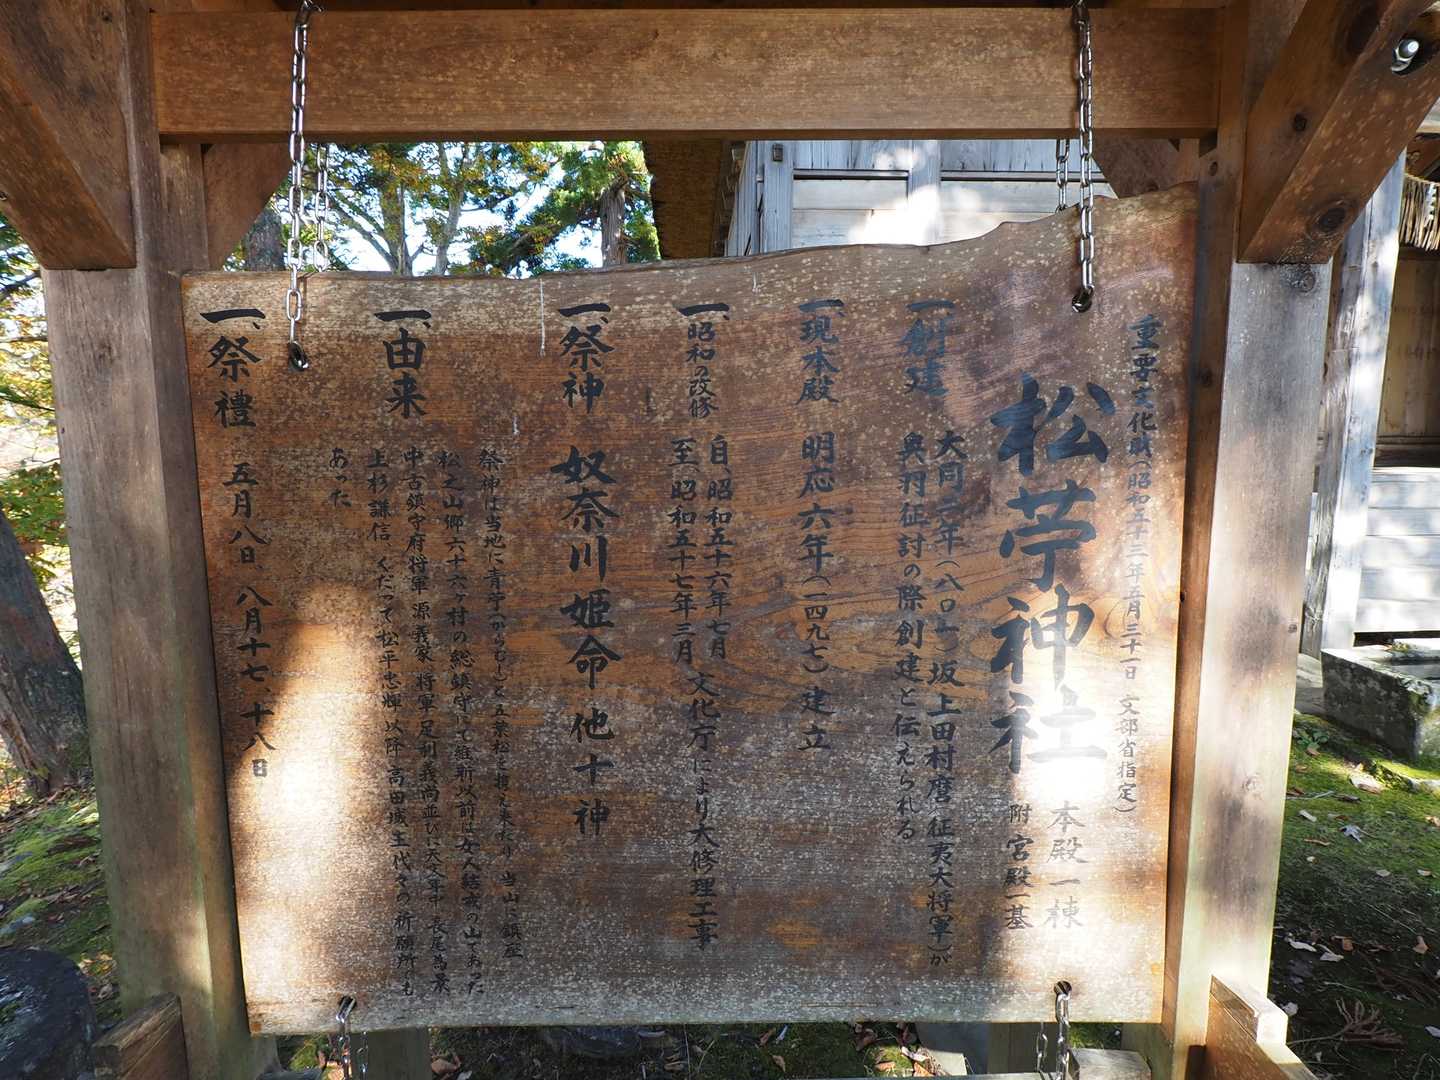 重要文化財(昭和五十三年五月三十一日 文部省指定)
松苧神社 本殿一棟
附 宮殿一基
一、創建 大同二年(八〇七)坂上田村麿(征夷大将軍)が
奥羽征討の際創建と伝えられる
一、現本殿 明応六年(一四九七)建立
一、昭和の改修 自、昭和五十六年七月
至、昭和五十七年三月 文化庁により大修理工事
一、祭神 奴奈川姫命 他十神
一、由来 祭神は当地に青苧(からむし)と五葉松を携え来たり 当山に鎮座
松之山郷六十六ヶ村の総鎮守にて維新以前は女人結界の山であった
中古鎮守府将軍源義家 将軍足利義尚並びに天文年中 長尾為景
上杉謙信 くだって松平忠輝 以降高田城主代々の祈願所でも
あった
一、祭禮 五月八日、八月十七、十八日